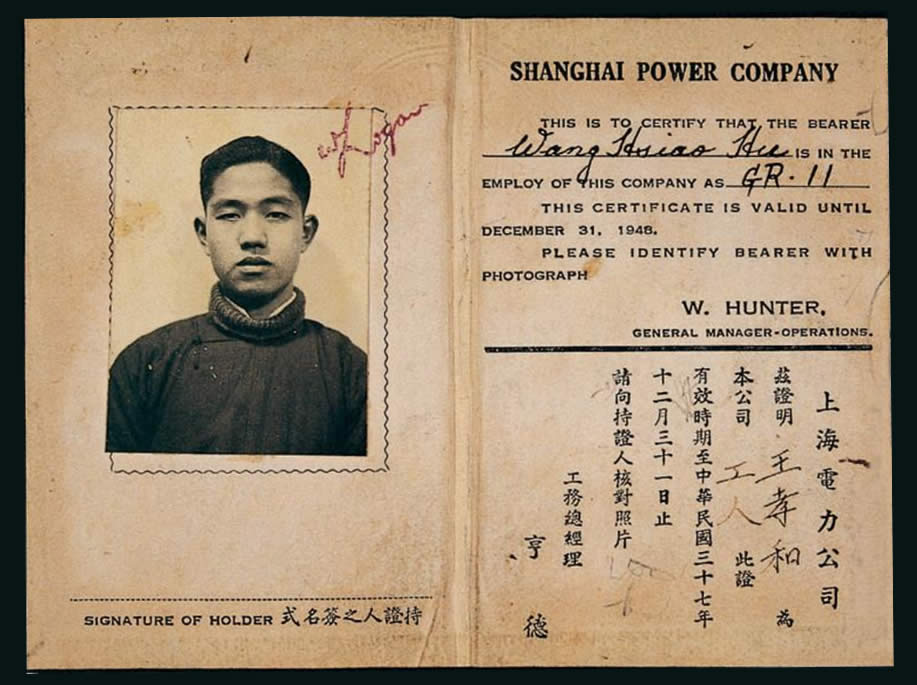 Logan
SIGNATURE OF HOLDER 持證人之簽名式
SHANGHAI POWER COMPANY
THIS IS TO CERTIFY THAT THE BEARER
Wang Hsiao Hu IS IN THE
EMPLOY OF THIS COMPANY AS GR-11
THIS CERTIFICATE IS VALID UNTIL
DECEMBER 31, 1948.
PLEASE IDENTIFY BEARER WITH
PHOTOGRAPH
W. HUNTER,
GENERAL MANAGER-OPERATIONS.
上海電力公司
茲證明 王孝和 為
本公司 工人 此證
有效時期至中華民國三十七年
十二月三十一日止
請向持證人核對照片
工務總經理
亨德